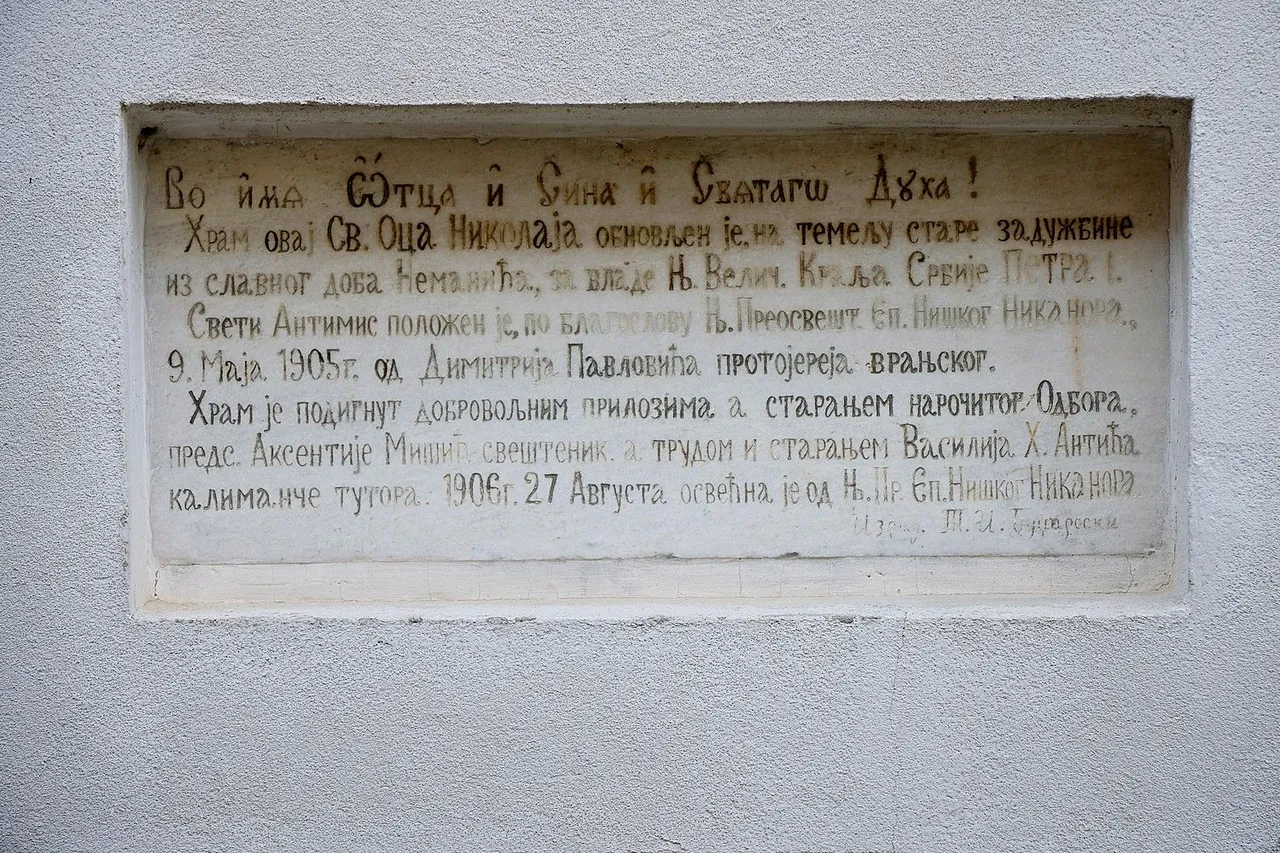 Во и҆мѧ Ѿтца и҆ Сина и҆ Свѧтагѡ Дꙋха !
Храм овај Св. Оца Николаја обновљен је, на темељу старе задужбине
из славног доба Немањића, за владе Њ. Велич. Краља Србије Петра I.
Свети Антимис положен је, по благослову Њ. Преосвешт. Еп. Нишког Никанора,
9. Маја 1905г. од Димитрија Павловића протојереја врањског.
Храм је подигнут добровољним прилозима а старањем нарочитог Одбора,
предс. Аксентије Мишић свештеник. а трудом и старањем Василија Х. Антића
калиманче тутора. 1906г. 27 Августа освећна је од Њ. Пр. Еп. Нишког Никанора
Израд. Т. И.